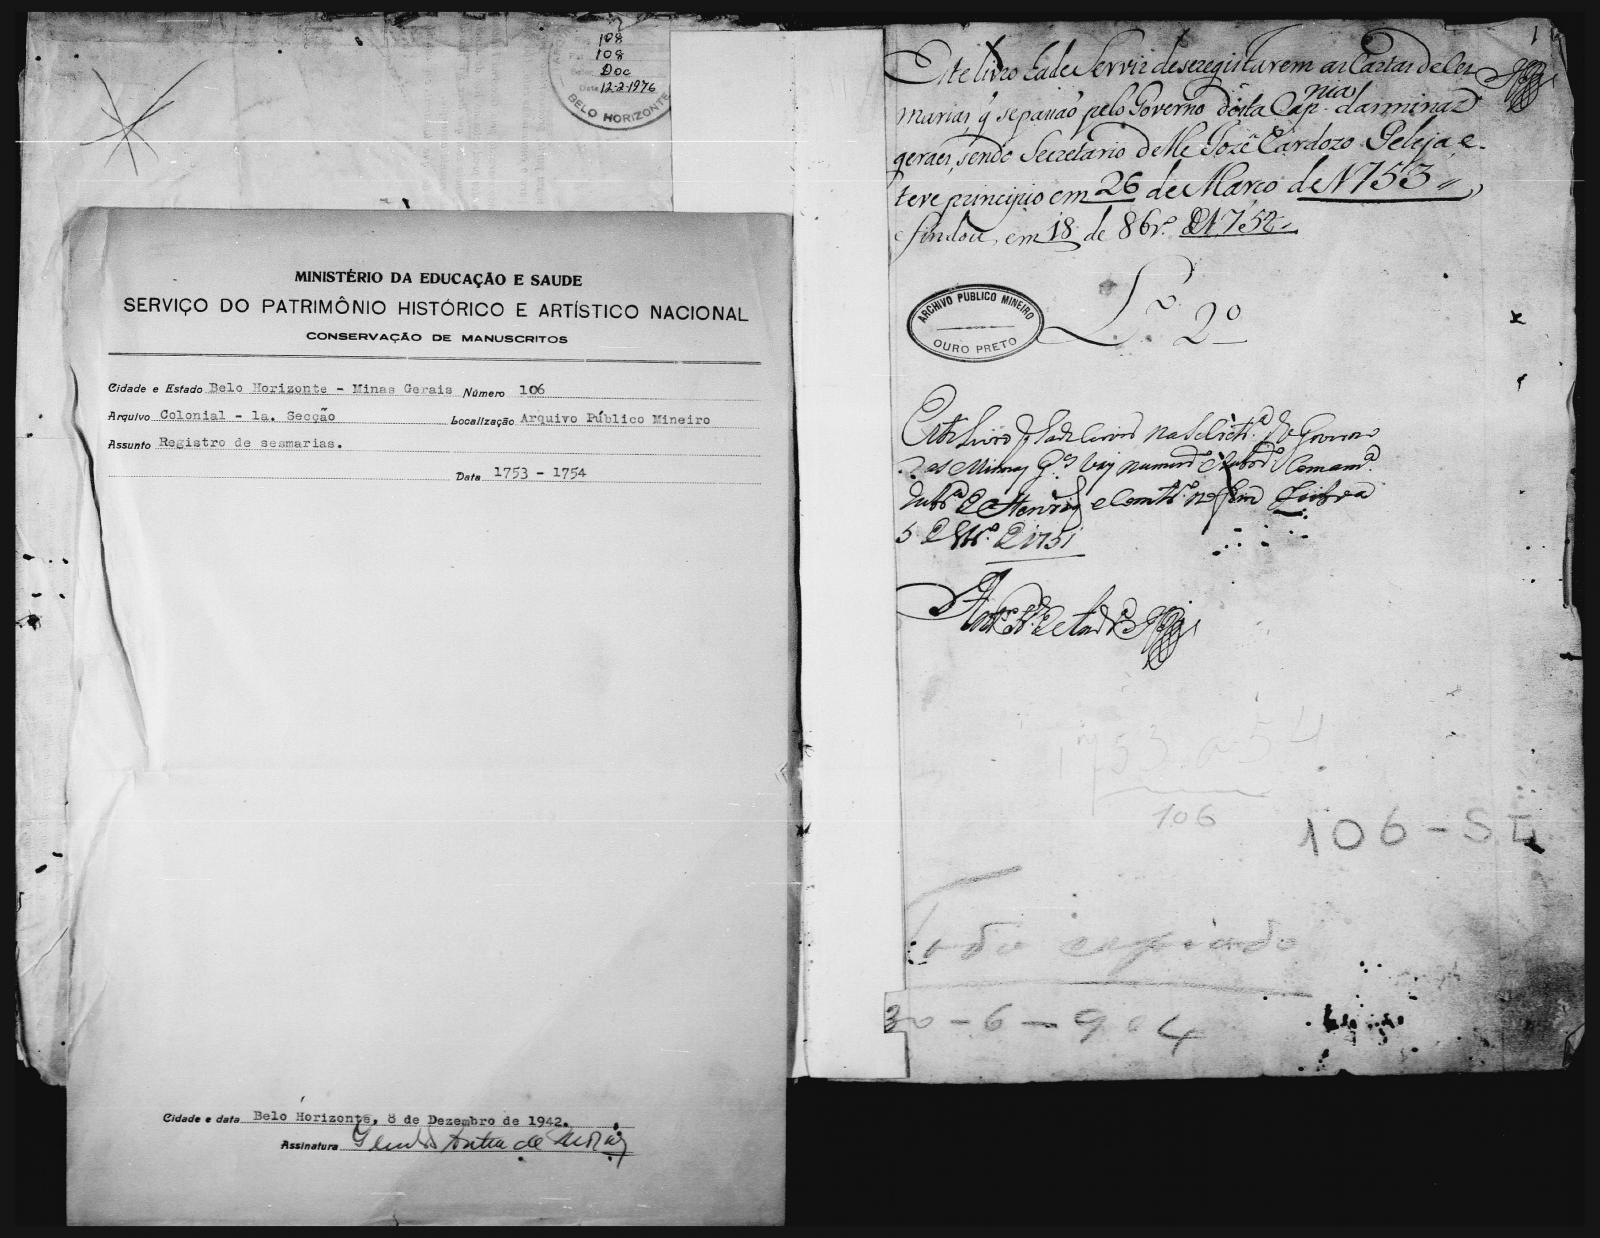 108
108
Doc
Data 12-2-1976
BELO HORIZONTE
MINISTÉRIO DA EDUCAÇÃO E SAUDE
SERVIÇO DO PATRIMÔNIO HISTÓRICO E ARTÍSTICO NACIONAL
CONSERVAÇÃO DE MANUSCRITOS
Cidade e Estado Belo Horizonte - Minas Gerais Número 106
Arquivo Colonial - 1a. Secção Localização Arquivo Público Mineiro
Assunto Registro de sesmarias.
Data 1753 - 1754
Cidade e data Belo Horizonte, 8 de Dezembro de 1942.
Assinatura
1
Este livro hade Servir deseregistarem as Cartas deSes
marias q̃ sepasaõ pelo Governo desta Cap.nia dasminas
geraes, sendo Secretario delle Jozê Cardozo Peleja e
teve principio em 26 de Março de 1753
e findou, em 18 de 8br.º de 1754
L.º 2º
ARCHIVO PUBLICO MINEIRO
OURO PRETO
Este Livro q hade servir na Secret.ª do Governo
das Minas G.es vay numerd.º e rubrd.º
e no fim Lisboa
5 de de 1751
1753 a 54
106
106-SC
Todo copiado
30-6-904